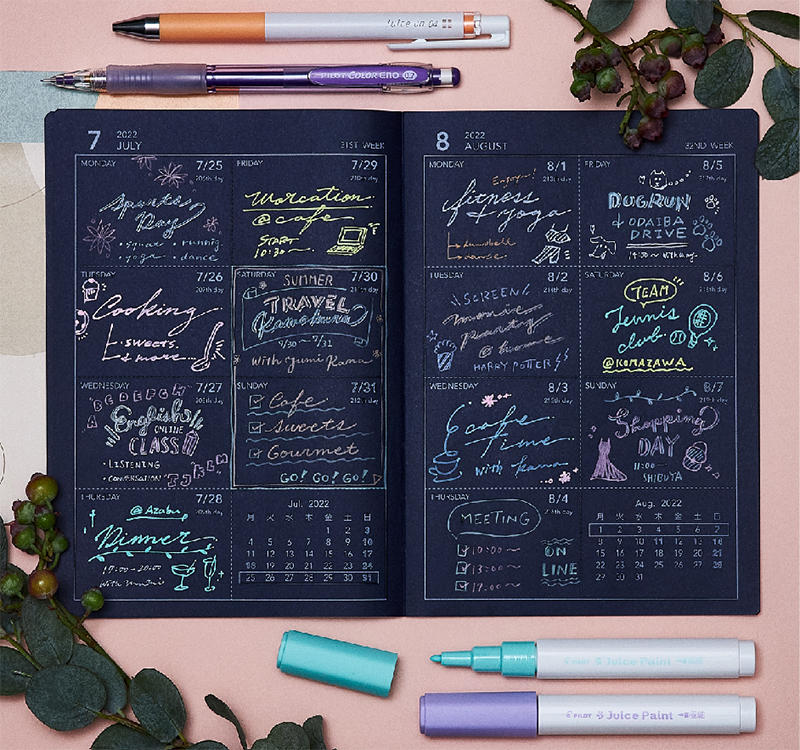 Juice up 04
PILOT COLOR ENO 0.7
7 2022 JULY 31ST WEEK
MONDAY 7/25
206th day
Sports Day
• square • running
• yoga • dance
TUESDAY 7/26
207th day
Cooking
sweets.
& more...
WEDNESDAY 7/27
208th day
A B C D E F G H
English
ONLINE
CLASS
• LISTENING
• CONVERSATION
I J K L M
THURSDAY 7/28
209th day
@ Azabu
Dinner
17:00 - 20:00
FRIDAY 7/29
210th day
Worcation
@ cafe
START
10:30~
SATURDAY 7/30
211th day
SUMMER
TRAVEL
7/30 ~ 7/31
With Yumi Kana
SUNDAY 7/31
212th day
Cafe
Sweets
Gourmet
GO! GO! GO!
Jul. 2022
月 火 水 木 金 土 日
1 2 3
4 5 6 7 8 9 10
11 12 13 14 15 16 17
18 19 20 21 22 23 24
25 26 27 28 29 30 31
8 2022 AUGUST 32ND WEEK
MONDAY 8/1
213th day
Enjoy!
fitness
& yoga
dumbbell
dance
TUESDAY 8/2
214th day
SCREEN
movie
party
@ home
HARRY POTTER
WEDNESDAY 8/3
215th day
cafe
time
with kana
THURSDAY 8/4
216th day
MEETING
10:00~
13:00~
17:00~
ON
LINE
FRIDAY 8/5
217th day
DOGRUN
& ODAIBA
DRIVE
SATURDAY 8/6
218th day
TEAM
Tennis
club
@KOMAZAWA
SUNDAY 8/7
219th day
Shopping
DAY
11:00~
SHIBUYA
Aug. 2022
月 火 水 木 金 土 日
1 2 3 4 5 6 7
8 9 10 11 12 13 14
15 16 17 18 19 20 21
22 23 24 25 26 27 28
29 30 31
PILOT Juice Paint
PILOT Juice Paint